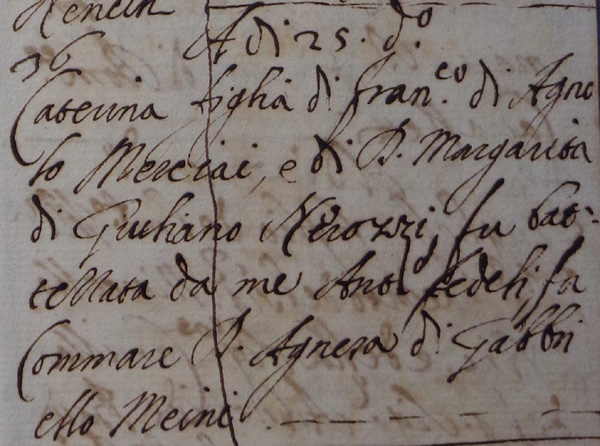 A di 25. d.o
36
Caterina figlia di fran.co di Agno
lo Merciai, e di D. Margarita
di Giuliano Nerozzi, fu bat-
tezzata da me Ant.o fedeli, fu
Commare D. Agnesa di Gabbri
ello Meini